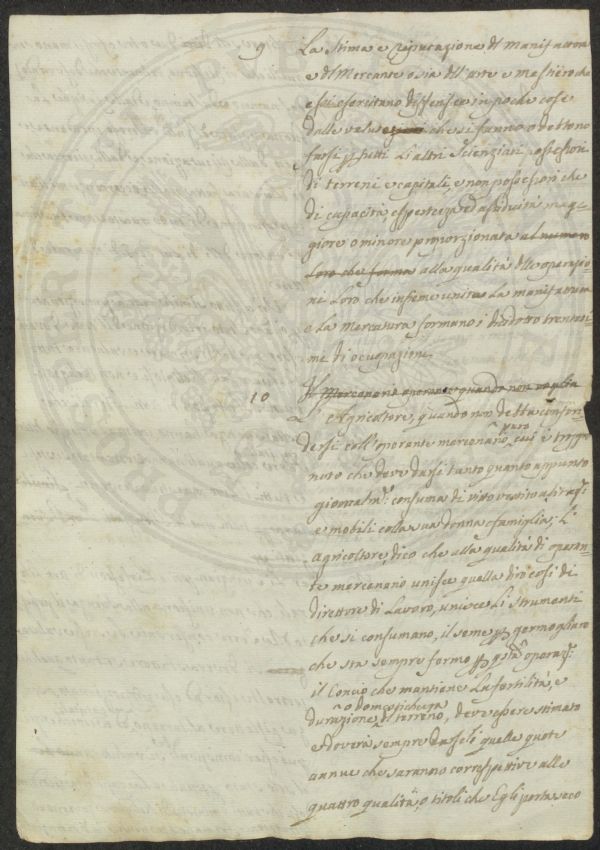 9 La Stima e riputazione del Manifattore
e del Mercante o sia dell'arte e mestiero che
essi esercitano di stenser in poche cose
dalle valu che si fanno o debbono
farsi per tutti Li altri Scienziati possessori
di terreni e capitali, e non possessori che
di capacità esperteza ed assiduità mag=
giore o minore proporzionata al numero
Loro che forma alla qualità delle operazio=
ni Loro che insieme unite La manifattura
e La Mercatura formano i dieciotto trentesi=
me di occupazione.
Il Mercenario operante quando non voglia
10 L'Agricoltore, quando non debba confon=
dersi coll'operante mercenario puro cui è tropo
noto che deve darsi tanto quanto appunto
giornalmte: consuma di vitto vestito
e mobili colla sua donna e famiglia; L'
Agricoltore, dico che alla qualità di operan=
te mercenario unisce quella dirò così di
direttore di Lavoro, unisce Li Strumenti
che si consumano, il seme per germogliare
che sta sempre fermo per queste operaz:
il Concio che mantiene La fertilità, e
durazione o domestichezza del terreno, deve essere stimato
e doverà sempre darseli quelle quote
annue che saranno correspettive alle
quattro qualità, o titoli che Egli porta seco